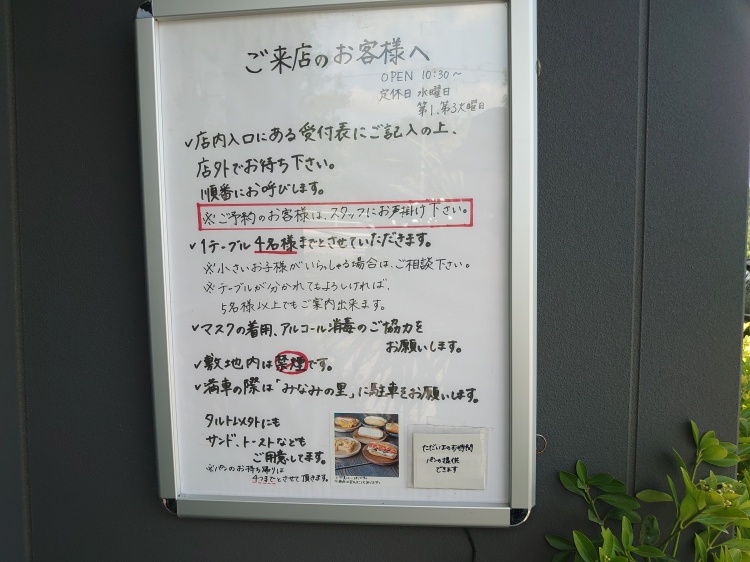 ご来店のお客様へ
OPEN 10:30～
定休日 水曜日
第1、第3火曜日
✓店内入口にある受付表にご記入の上、
店外でお待ち下さい。
順番にお呼びします。
※ご予約のお客様は、スタッフにお声掛け下さい。
✓1テーブル4名様までとさせていただきます。
※小さいお子様がいらっしゃる場合は、ご相談下さい。
※テーブルが分かれてもよろしければ、
5名様以上でもご案内出来ます。
✓マスクの着用、アルコール消毒のご協力を
お願いします。
✓敷地内は禁煙です。
✓満車の際は「みなみの里」に駐車をお願いします。
タルトムメタトにも
サンド、トーストなども
ご用意してます。
※パンのお持ち帰りは
4つまでとさせて頂きます。
ただいまのお時間
パンの提供
できます